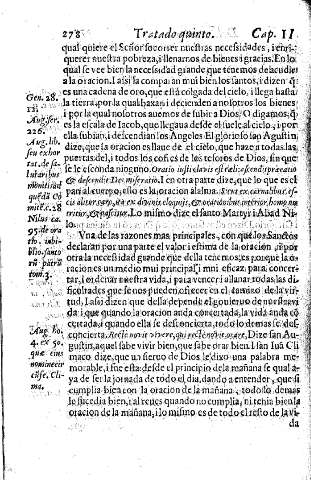 278 Tratado quinto. Cap. II
qual quiere el Señor socorrer nuestras necessidades, i enri-
querer nuestra pobreza, i llenarnos de bienes i gracias. En lo
qual se vee bien la necessidad grande que tenemos de acudir
a la oracion. I assi la comparan mui bien los santos, i dizen q̃
es una cadena de oro, que està colgada del cielo, i llega hasta
la tierra, por la qual baxan i decienden a nosotros los bienes,
i por la qual nosotros avemos de subir a Dios. O digamos, q̃
es la escala de Iacob, que llegava desde el suelo al cielo, i por
ella subian, i descendian los Angeles. El glorioso san Agustin
dize, que la oracion es llave de el cielo, que haze a todas las
puertas del, i todos los cofres de los tesoros de Dios, sin que
se le esconda ninguno. Oratio iusti clavis est
& descendit Dei miseratio. I en otra parte dize, que lo que es el
pan al cuerpo, esso es la oracion al alma. Sicut ex carnalibus, es-
cis alitur caro, ita ex divinis eloquijs, & orationibus interior homo nu-
tritur, & pascitur. Lo mismo dize el santo Martyr i Abad Ni-
lo.
Vna de las razones mas principales, con que los Sanctos
declaran por una parte el valor i estima de la oracion, i por
otra la necessidad grande que della tenemos, es porque la o-
racion es un medio mui principal, i mui eficaz, para concer-
tar, i ordenar nuestra vida, i para vencer i allanar todas las di-
ficultades que se nos puden ofrecer en el camino de la vir-
tud. I assi dizen que della depende el govierno de nuestra vi-
da i que quando la oracion anda concertada, la vida anda cõ
certada; i quando ella se desconcierta, todo lo demas se des-
concierta. Recte novit vivere, qui recte novit orare, Dize san Au-
gustin, aquel sabe vivir bien, que sabe orar bien. I san Iuã Cli
maco dize, que un siervo de Dios le dixo una palabra me-
morable, i fue esta: desde el principio de la mañana se qual a-
ya de ser la jornada de todo el dia, dando a entender, que si
cumplia bien con la oracion de la mañana, todo lo demas
le sucedia bien, i al reves quando no cumplia, ni tenia bien la
oracion de la mañana, i lo mismo es de todo el resto de la vi-
da
Gen. 28.
12.
Aug. ser.
226.
Aug. lib.
seu exhor
tat. de sa-
lutaribus
quædã Co
mit. c. 28
Nilus ca.
95. de ora
tio. in bi-
blio. sanct
rũ patrũ
tom. 3.
Aug. ho.
4. ex 50.
quæ eius
nomine cir
cũfe. Cli-
ma.